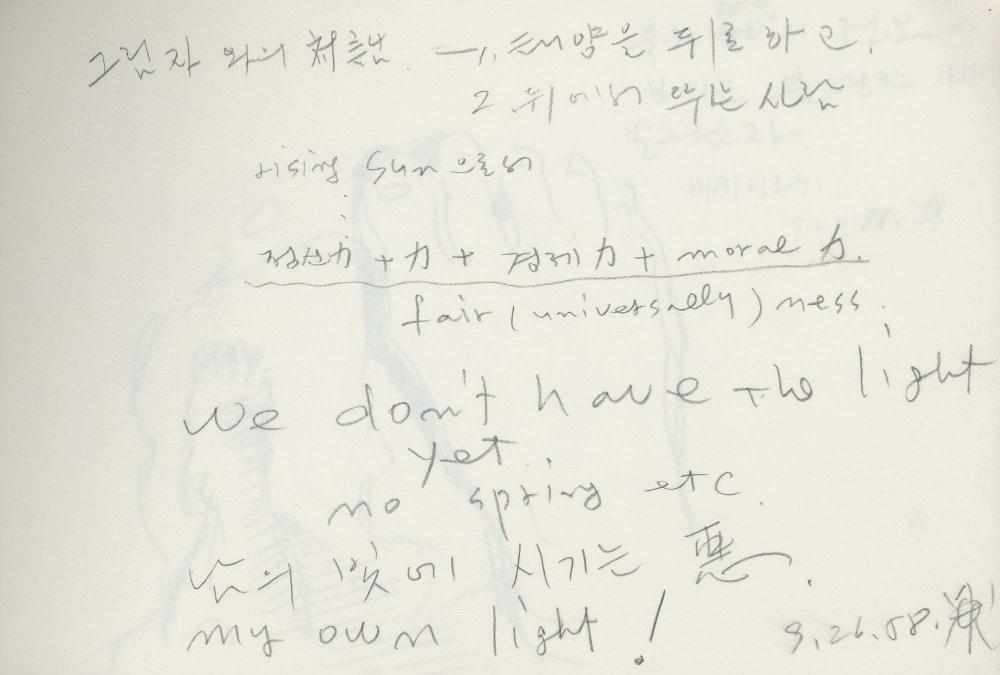 그림자 와의 対話 — 1. 태양을 뒤로 하고.
2. 뒤에서 뛰는 사람
rising Sun으로서
정신力 + 力 + 경제力 + moral 力.
fair (universally) ness.
we don't have the light
yet.
no spring etc.
남의 빛에 시기는 惡.
my own light!
9.26.88.